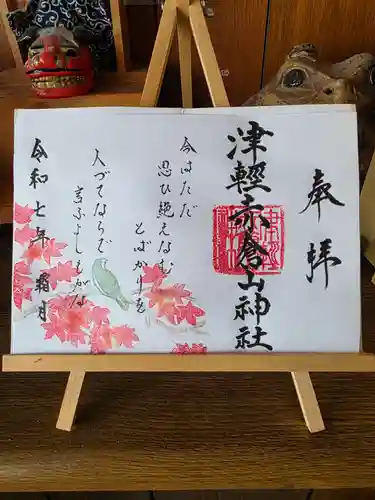 奉拝
津軽赤倉山神社
今はただ
思ひ絶えなむ
とばかりを
人づてならで
言ふよしもがな
令和七年霜月